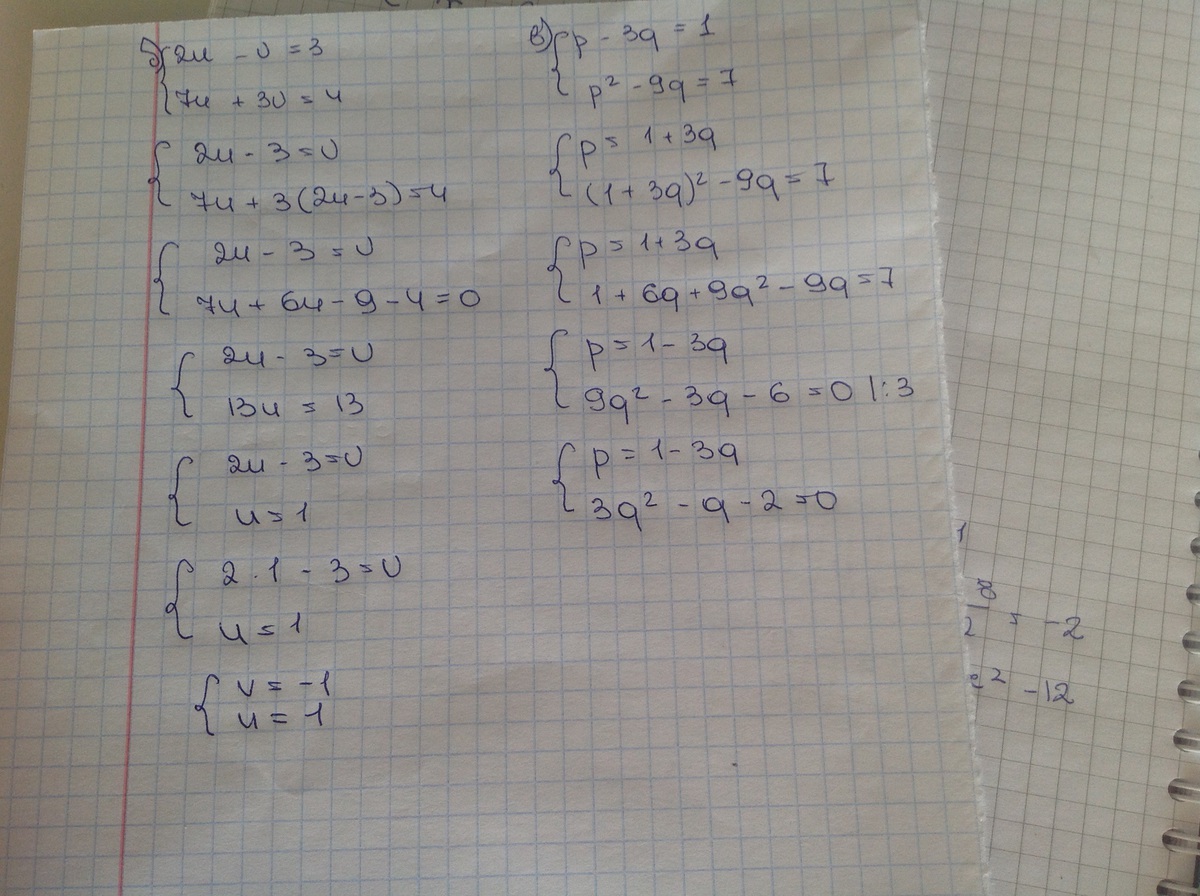 б) 2u - v = 3
7u + 3v = 4
2u - 3 = v
7u + 3(2u-3) = 4
2u - 3 = v
7u + 6u - 9 - 4 = 0
2u - 3 = v
13u = 13
2u - 3 = v
u = 1
2 · 1 - 3 = v
u = 1
v = -1
u = 1
в) p - 3q = 1
p² - 9q = 7
p = 1 + 3q
(1 + 3q)² - 9q = 7
p = 1 + 3q
1 + 6q + 9q² - 9q = 7
p = 1 - 3q
9q² - 3q - 6 = 0 | : 3
p = 1 - 3q
3q² - q - 2 = 0
= -2
² - 12